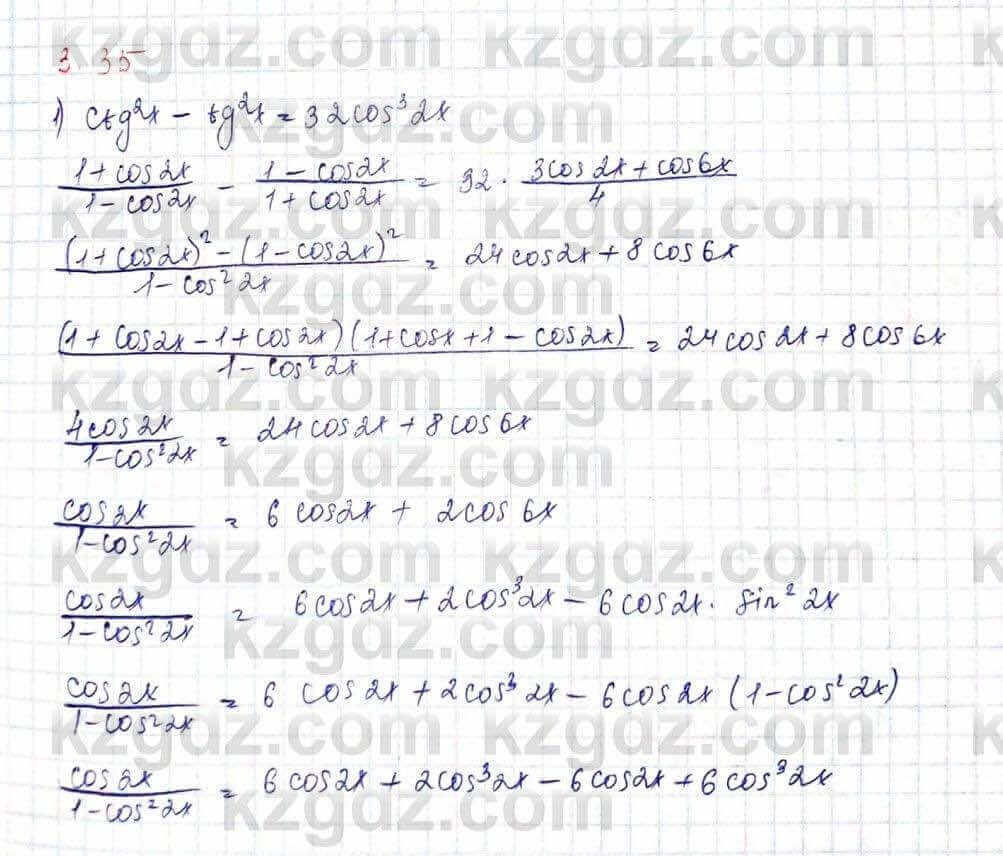 3 35
1) ctg²x - tg²x = 32cos³2x
(1+cos2x)/(1-cos2x) - (1-cos2x)/(1+cos2x) = 32 · (3cos2x+cos6x)/4
((1+cos2x)²-(1-cos2x)²)/(1-cos²2x) = 24cos2x+8cos6x
((1+cos2x-1+cos2x)(1+cosx+1-cos2x))/(1-cos²2x) = 24cos2x+8cos6x
4cos2x/(1-cos²2x) = 24cos2x+8cos6x
cos2x/(1-cos²2x) = 6cos2x+2cos6x
cos2x/(1-cos²2x) = 6cos2x+2cos³2x-6cos2x·sin²2x
cos2x/(1-cos²2x) = 6cos2x+2cos³2x-6cos2x(1-cos²2x)
cos2x/(1-cos²2x) = 6cos2x+2cos³2x-6cos2x+6cos³2x
kzgdz.com